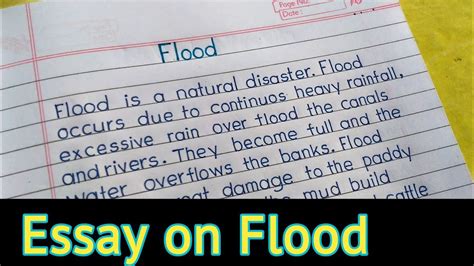 Page No.
Date :
Flood
Flood is a natural disaster. Flood
occurs due to continuos heavy rainfall,
excessive rain over flood the canals
and rivers. They become full and the
Water overflows the banks. Flood
great damage to the paddy
the mud build
cattle
Essay on Flood